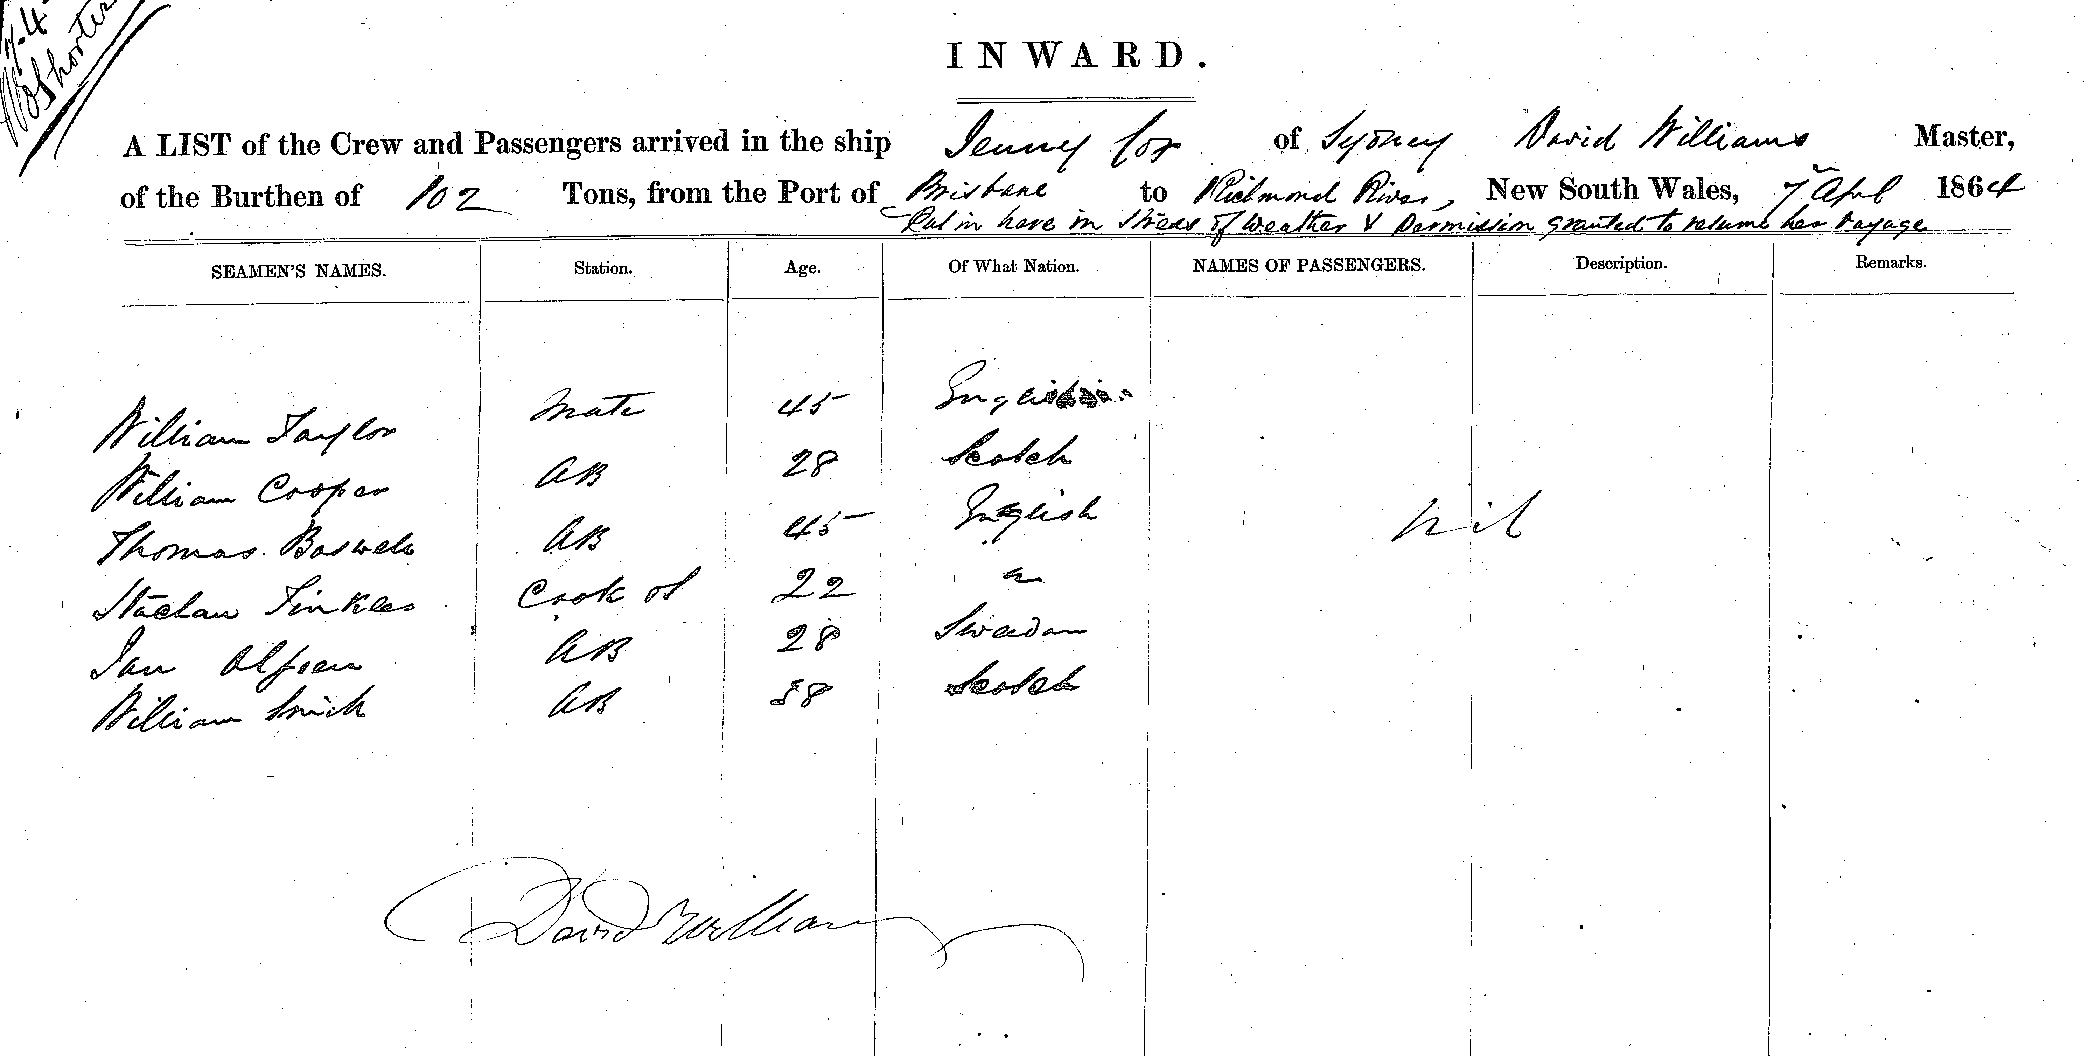 7-4
Shorter
INWARD.
A LIST of the Crew and Passengers arrived in the ship Jenney Cox of Sydney David Williams Master,
of the Burthen of 102 Tons, from the Port of Brisbane to Richmond River, New South Wales, 7 April 1864
Put in here in Stress of Weather & Permission granted to resume her Voyage
SEAMEN'S NAMES. Station. Age. Of What Nation. NAMES OF PASSENGERS. Description. Remarks.
William Taylor Mate 45 English
William Cooper AB 28 Scotch
Thomas Boswell AB 45 English
Nil
Cook 22 "
Jan Olfsen AB 28 Sweadan
William Smith AB 38 Scotch
David Williams